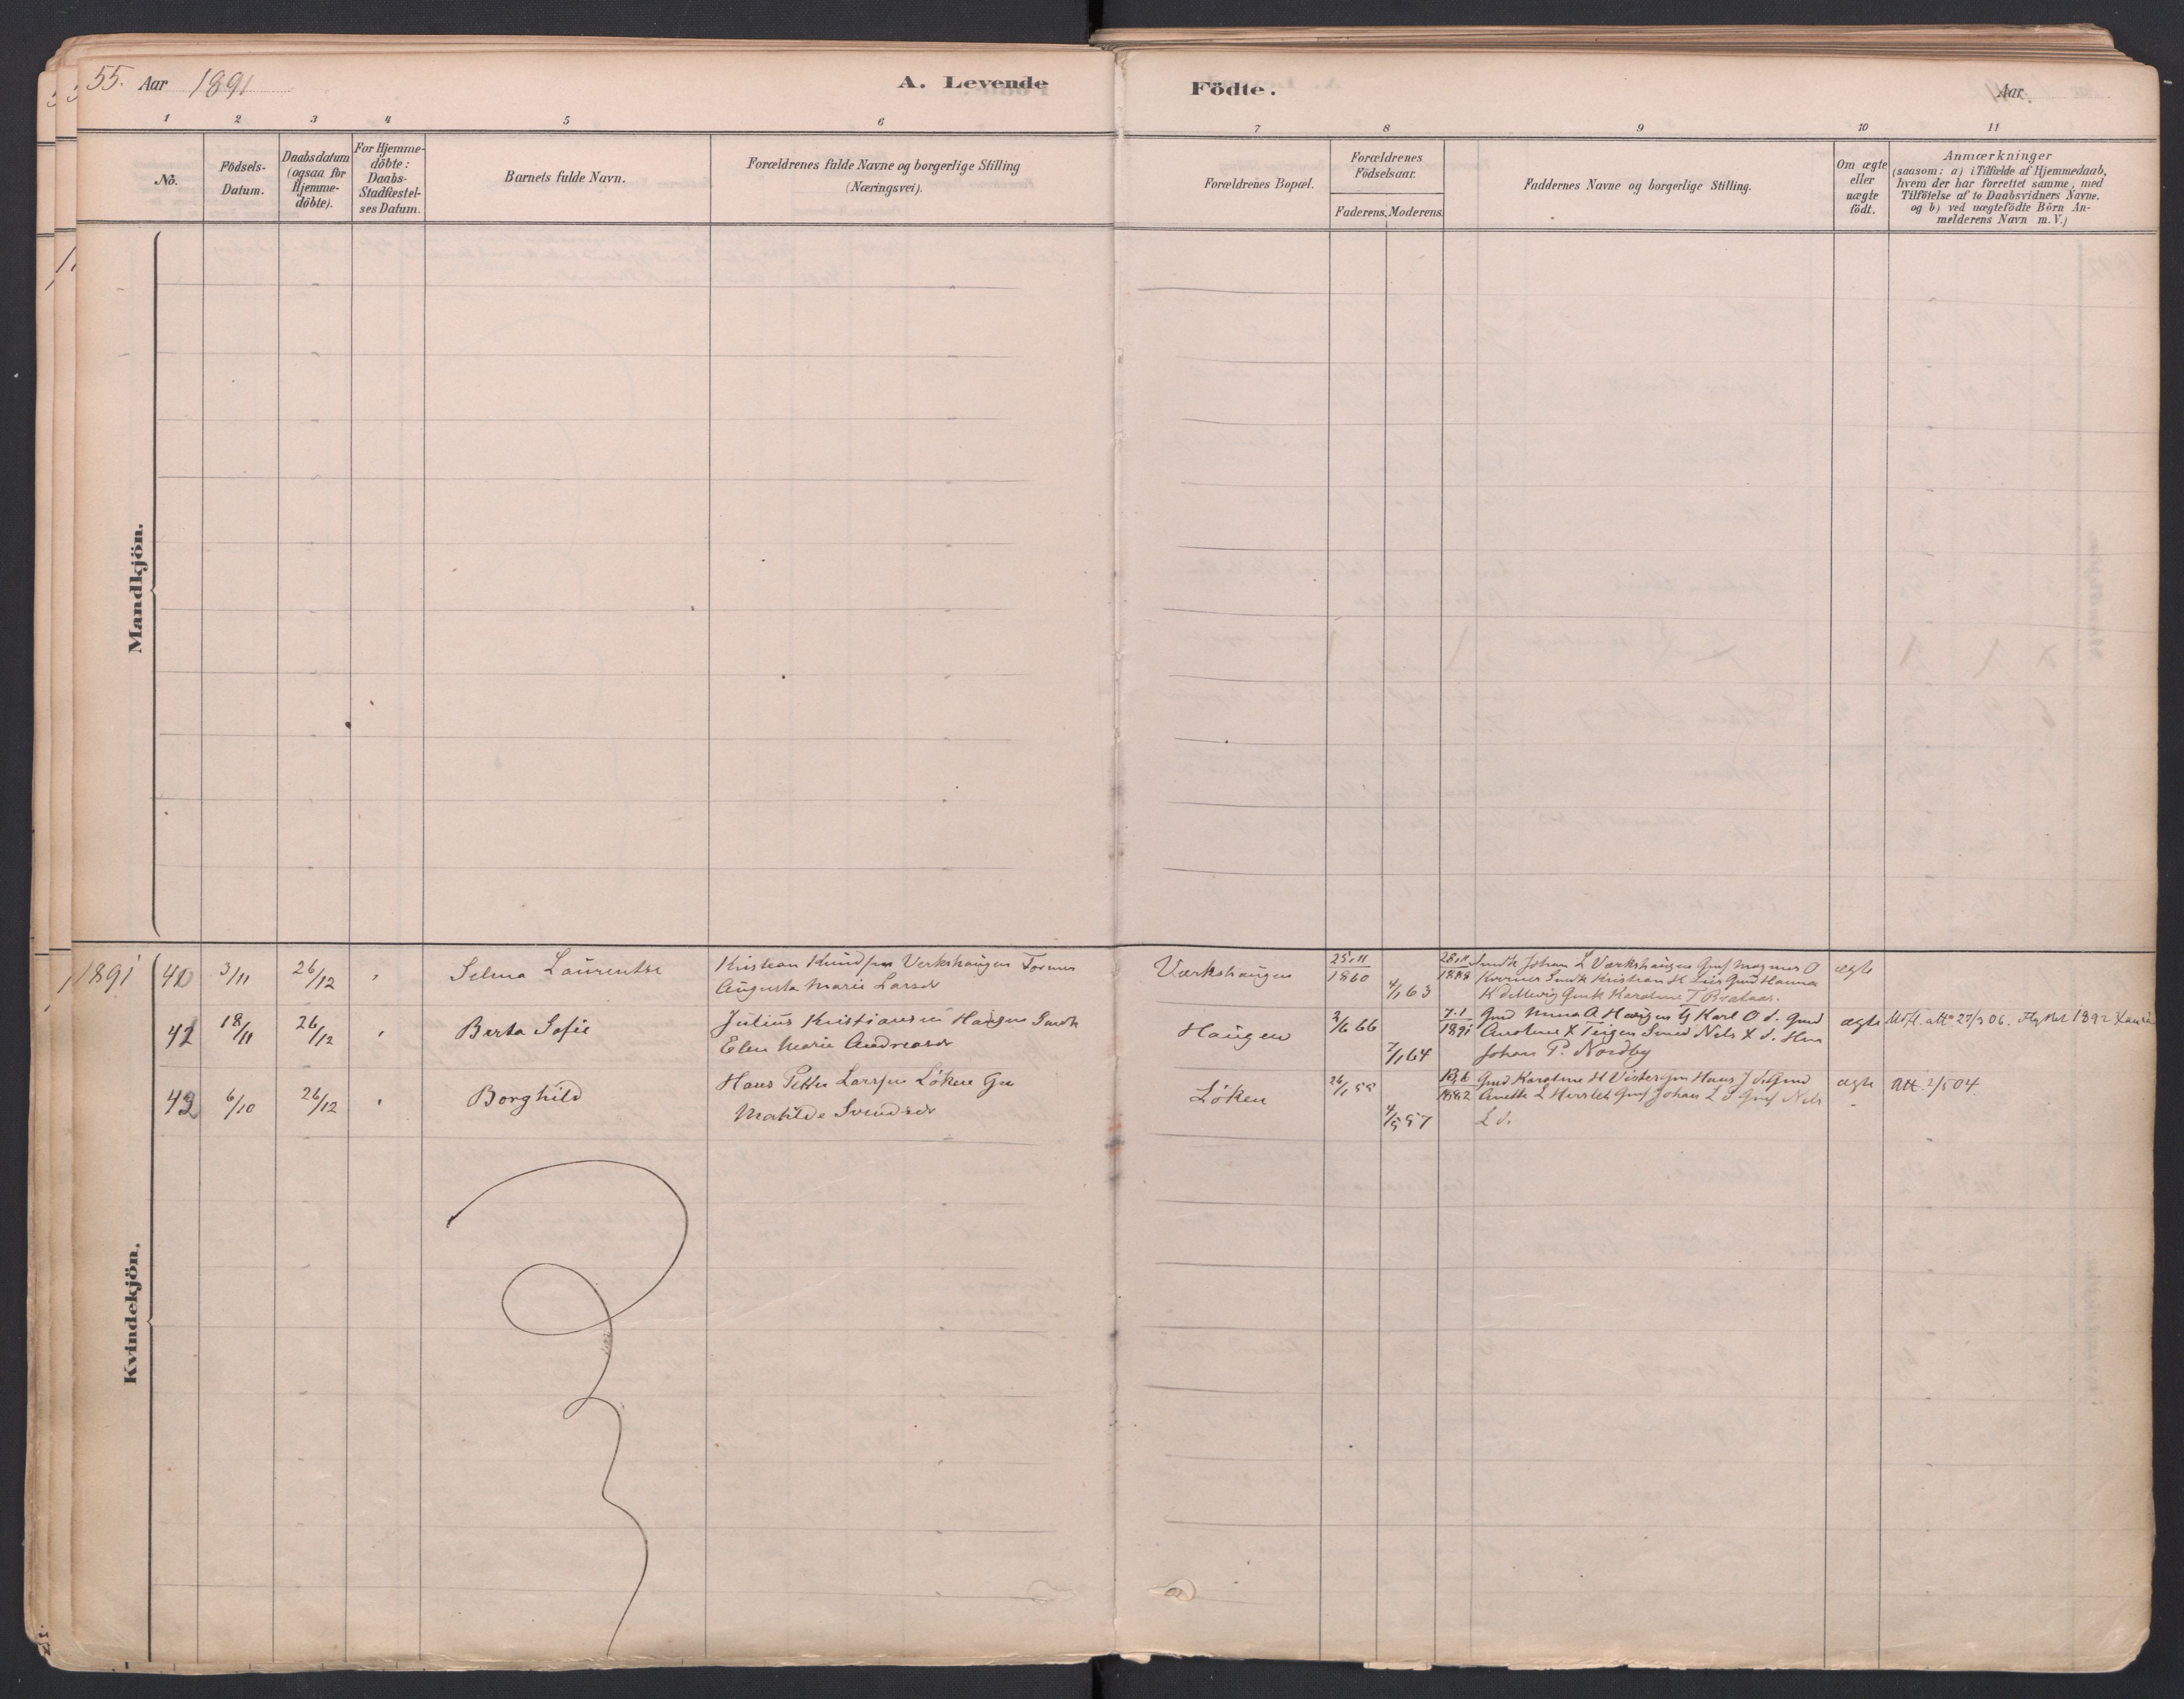 55. Aar 1891
A. Levende Födte.
Aar
1 2 3 4 5 6 7 8 9 10 11
No.
Födsels-
Datum.
Daabsdatum
(ogsaa for
Hjemme-
döbte).
For Hjemme-
döbte:
Daabs-
Stadfæstel-
ses Datum.
Barnets fulde Navn.
Forældrenes fulde Navne og borgerlige Stilling
(Næringsvei).
Forældrenes Bopæl.
Forældrenes
Födselsaar.
Faderens. Moderens.
Faddernes Navne og borgerlige Stilling.
Om ægte
eller
uægte
födt.
Anmærkninger
(saasom: a) i Tilfælde af Hjemmedaab,
hvem der har forrettet samme, med
Tilföielse af to Daabsvidners Navne.
og b) ved uægtefödte Börn An-
melderens Navn m. V.)
Mandkjön.
Kvindekjön.
1891
40 3/11 26/12 Selma Laurentse
Kristian Knudsen Verkshaugen Former
Augusta Marie Larsdr
Værkshaugen
25.11
1860
4/1 63
Johan L Værkshaugen Magnus O
Kristian K Lier Gmd Hanna
Karoline T Brataas.
ægte
42 18/11 26/12 Berta Sofie
Julius Kristiansen Haugen Smdk
Elen Marie Andreasdr
Haugen
2/6 66
7/1 64
7.1
1891
Gmd Mina A Haugen G Karl O d. Gmd
Karoline K Teigen Smed Nils K d.
Johan P. Nordby
ægte
att 27/3 06. 1892
43 6/10 26/12 Borghild
Hans Petter Larssen Löken Gm
Matilde Svendsdr
Löken
26/1 55
4/5 57
1882
Gmd Karoline H Vister Gm Hans J d. Gmd
Anette L Herstet Gmf Johan L d Gmf Nils
L d.
ægte
Att. 2/5 04.